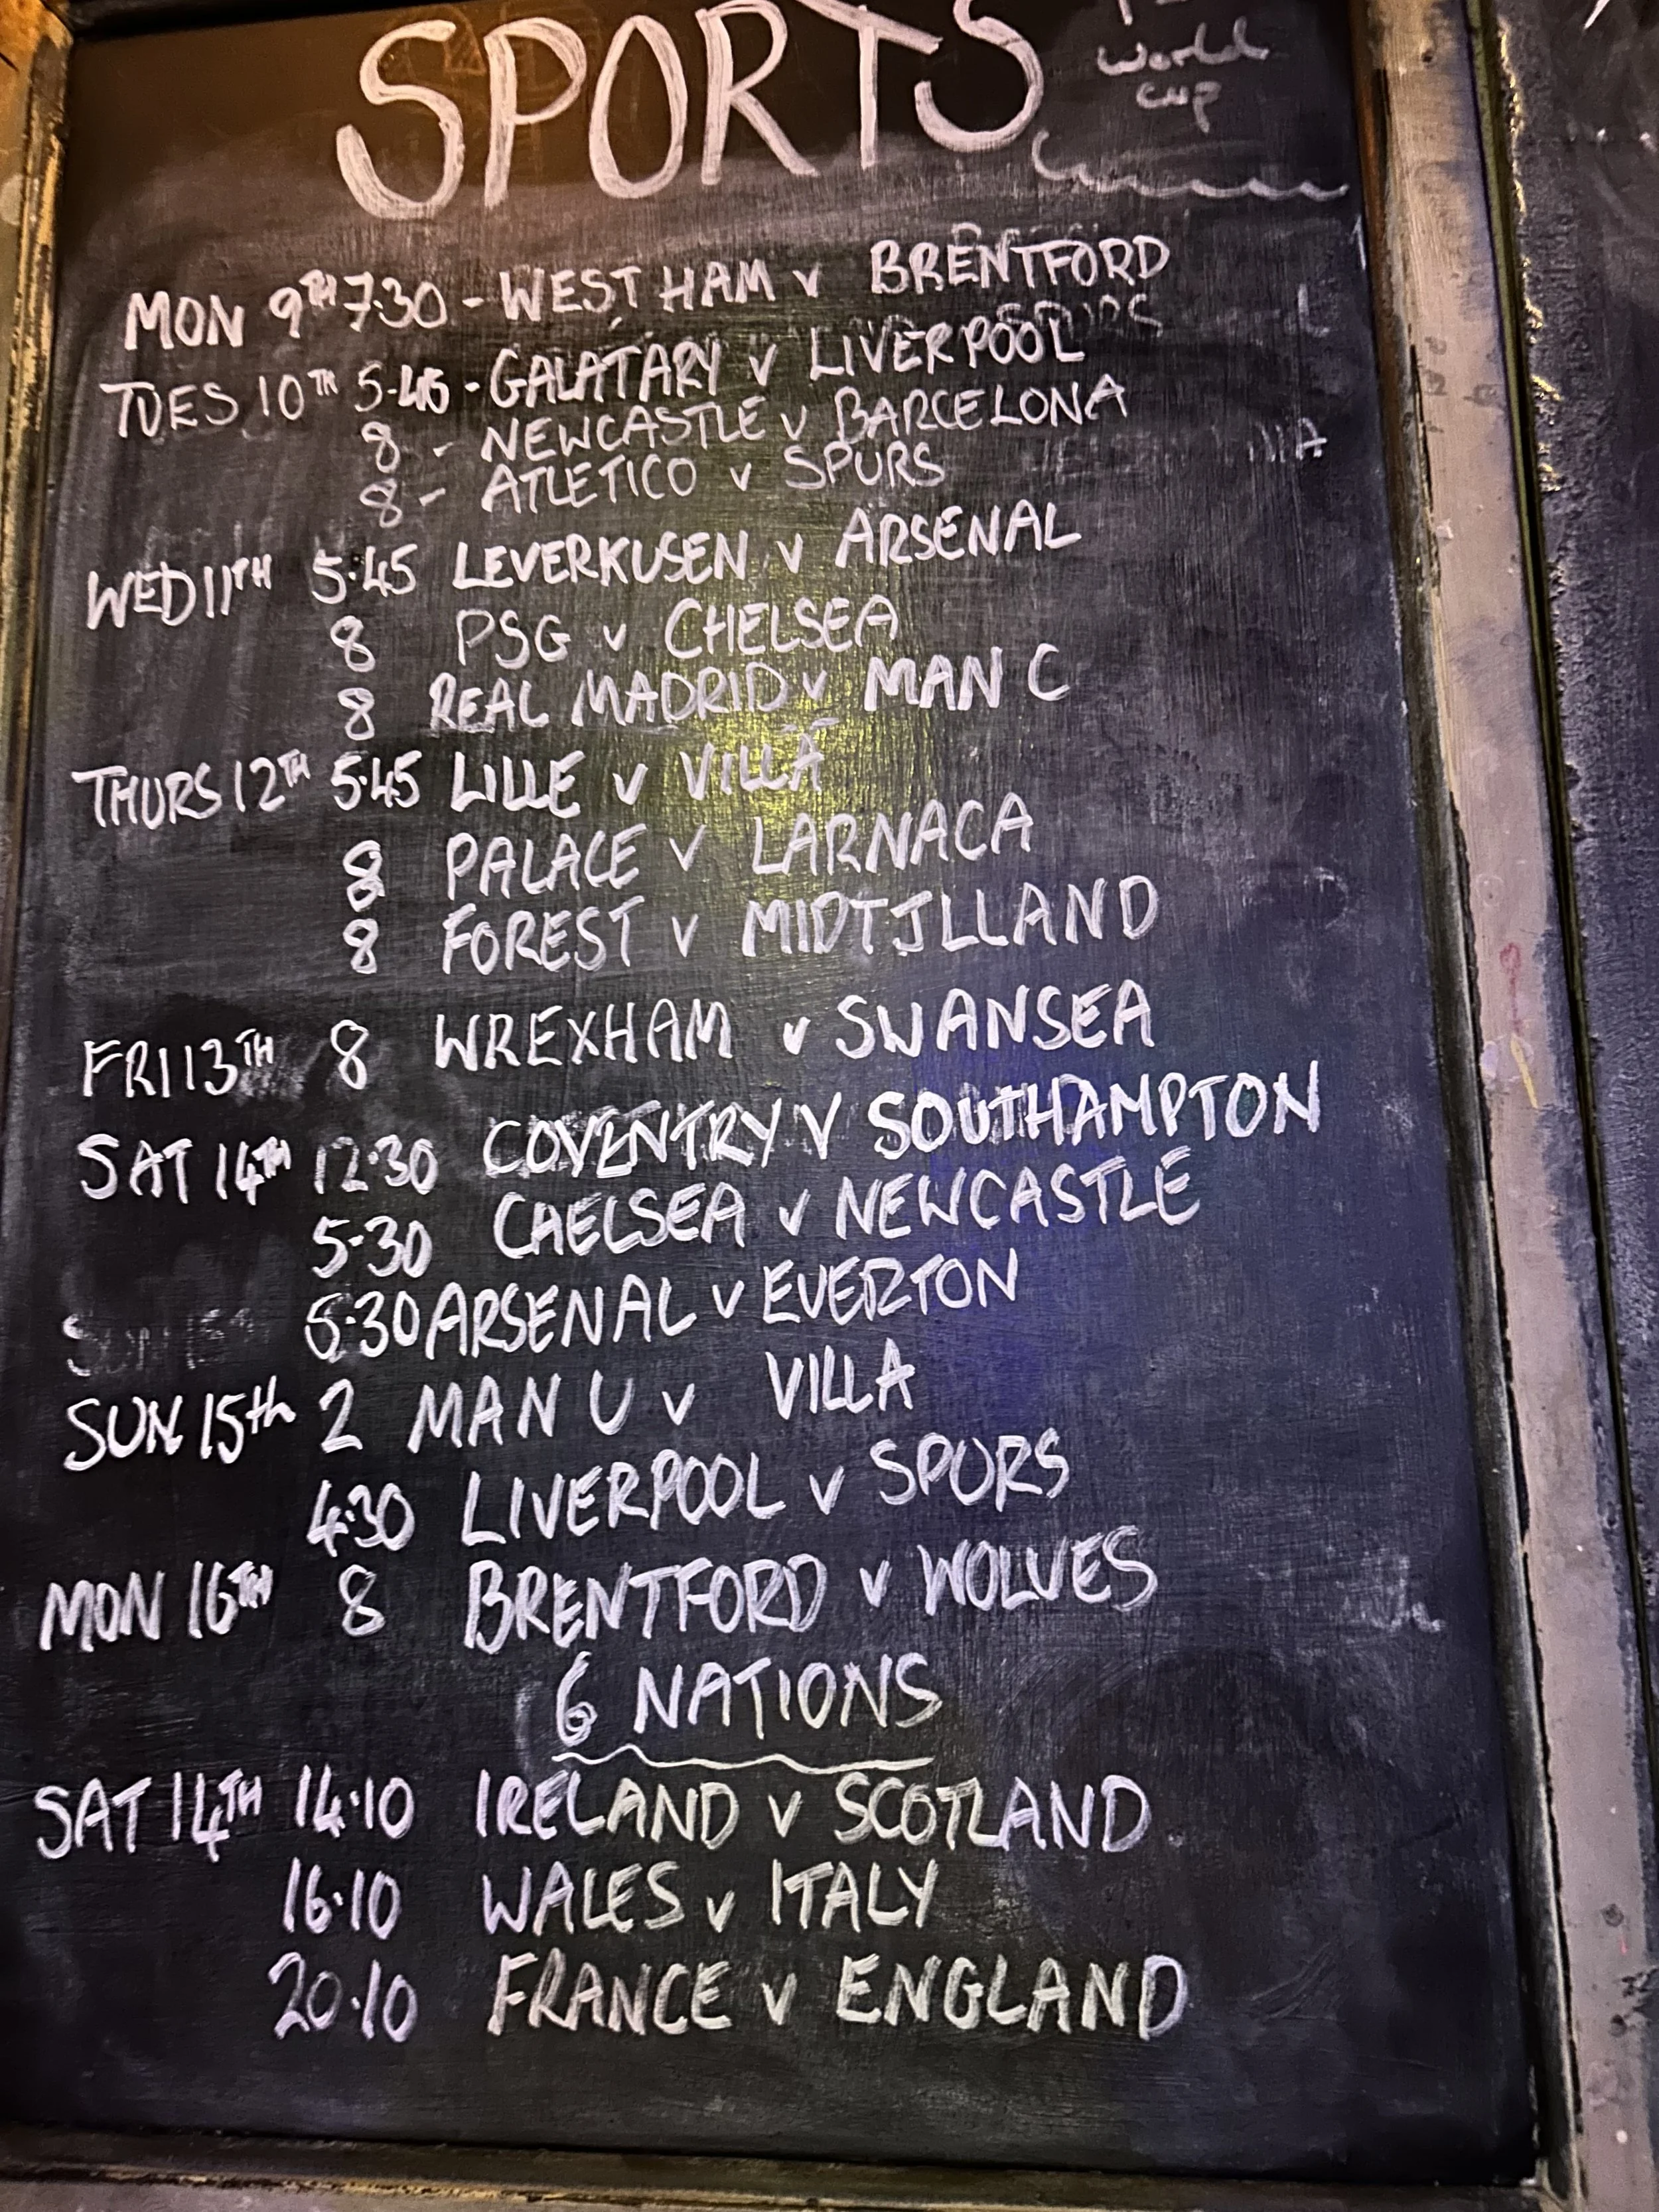 SPORTS
World
cup
MON 9TH 7.30 - WEST HAM v BRENTFORD
TUES 10TH 5-45 - GALATARY v LIVERPOOL
8 - NEWCASTLE v BARCELONA
8 - ATLETICO v SPURS
WED 11TH 5.45 LEVERKUSEN v ARSENAL
8 PSG v CHELSEA
8 REAL MADRID v MAN C
THURS 12TH 5.45 LILLE v VILLA
8 PALACE v LARNACA
8 FOREST v MIDTJLLAND
FRI 13TH 8 WREXHAM v SWANSEA
SAT 14TH 12.30 COVENTRY V SOUTHAMPTON
5-30 CHELSEA v NEWCASTLE
5.30 ARSENAL v EVERTON
SUN 15th 2 MAN U v VILLA
4.30 LIVERPOOL v SPURS
MON 16TH 8 BRENTFORD v WOLVES
6 NATIONS
SAT 14TH 14.10 IRELAND v SCOTLAND
16.10 WALES v ITALY
20.10 FRANCE v ENGLAND